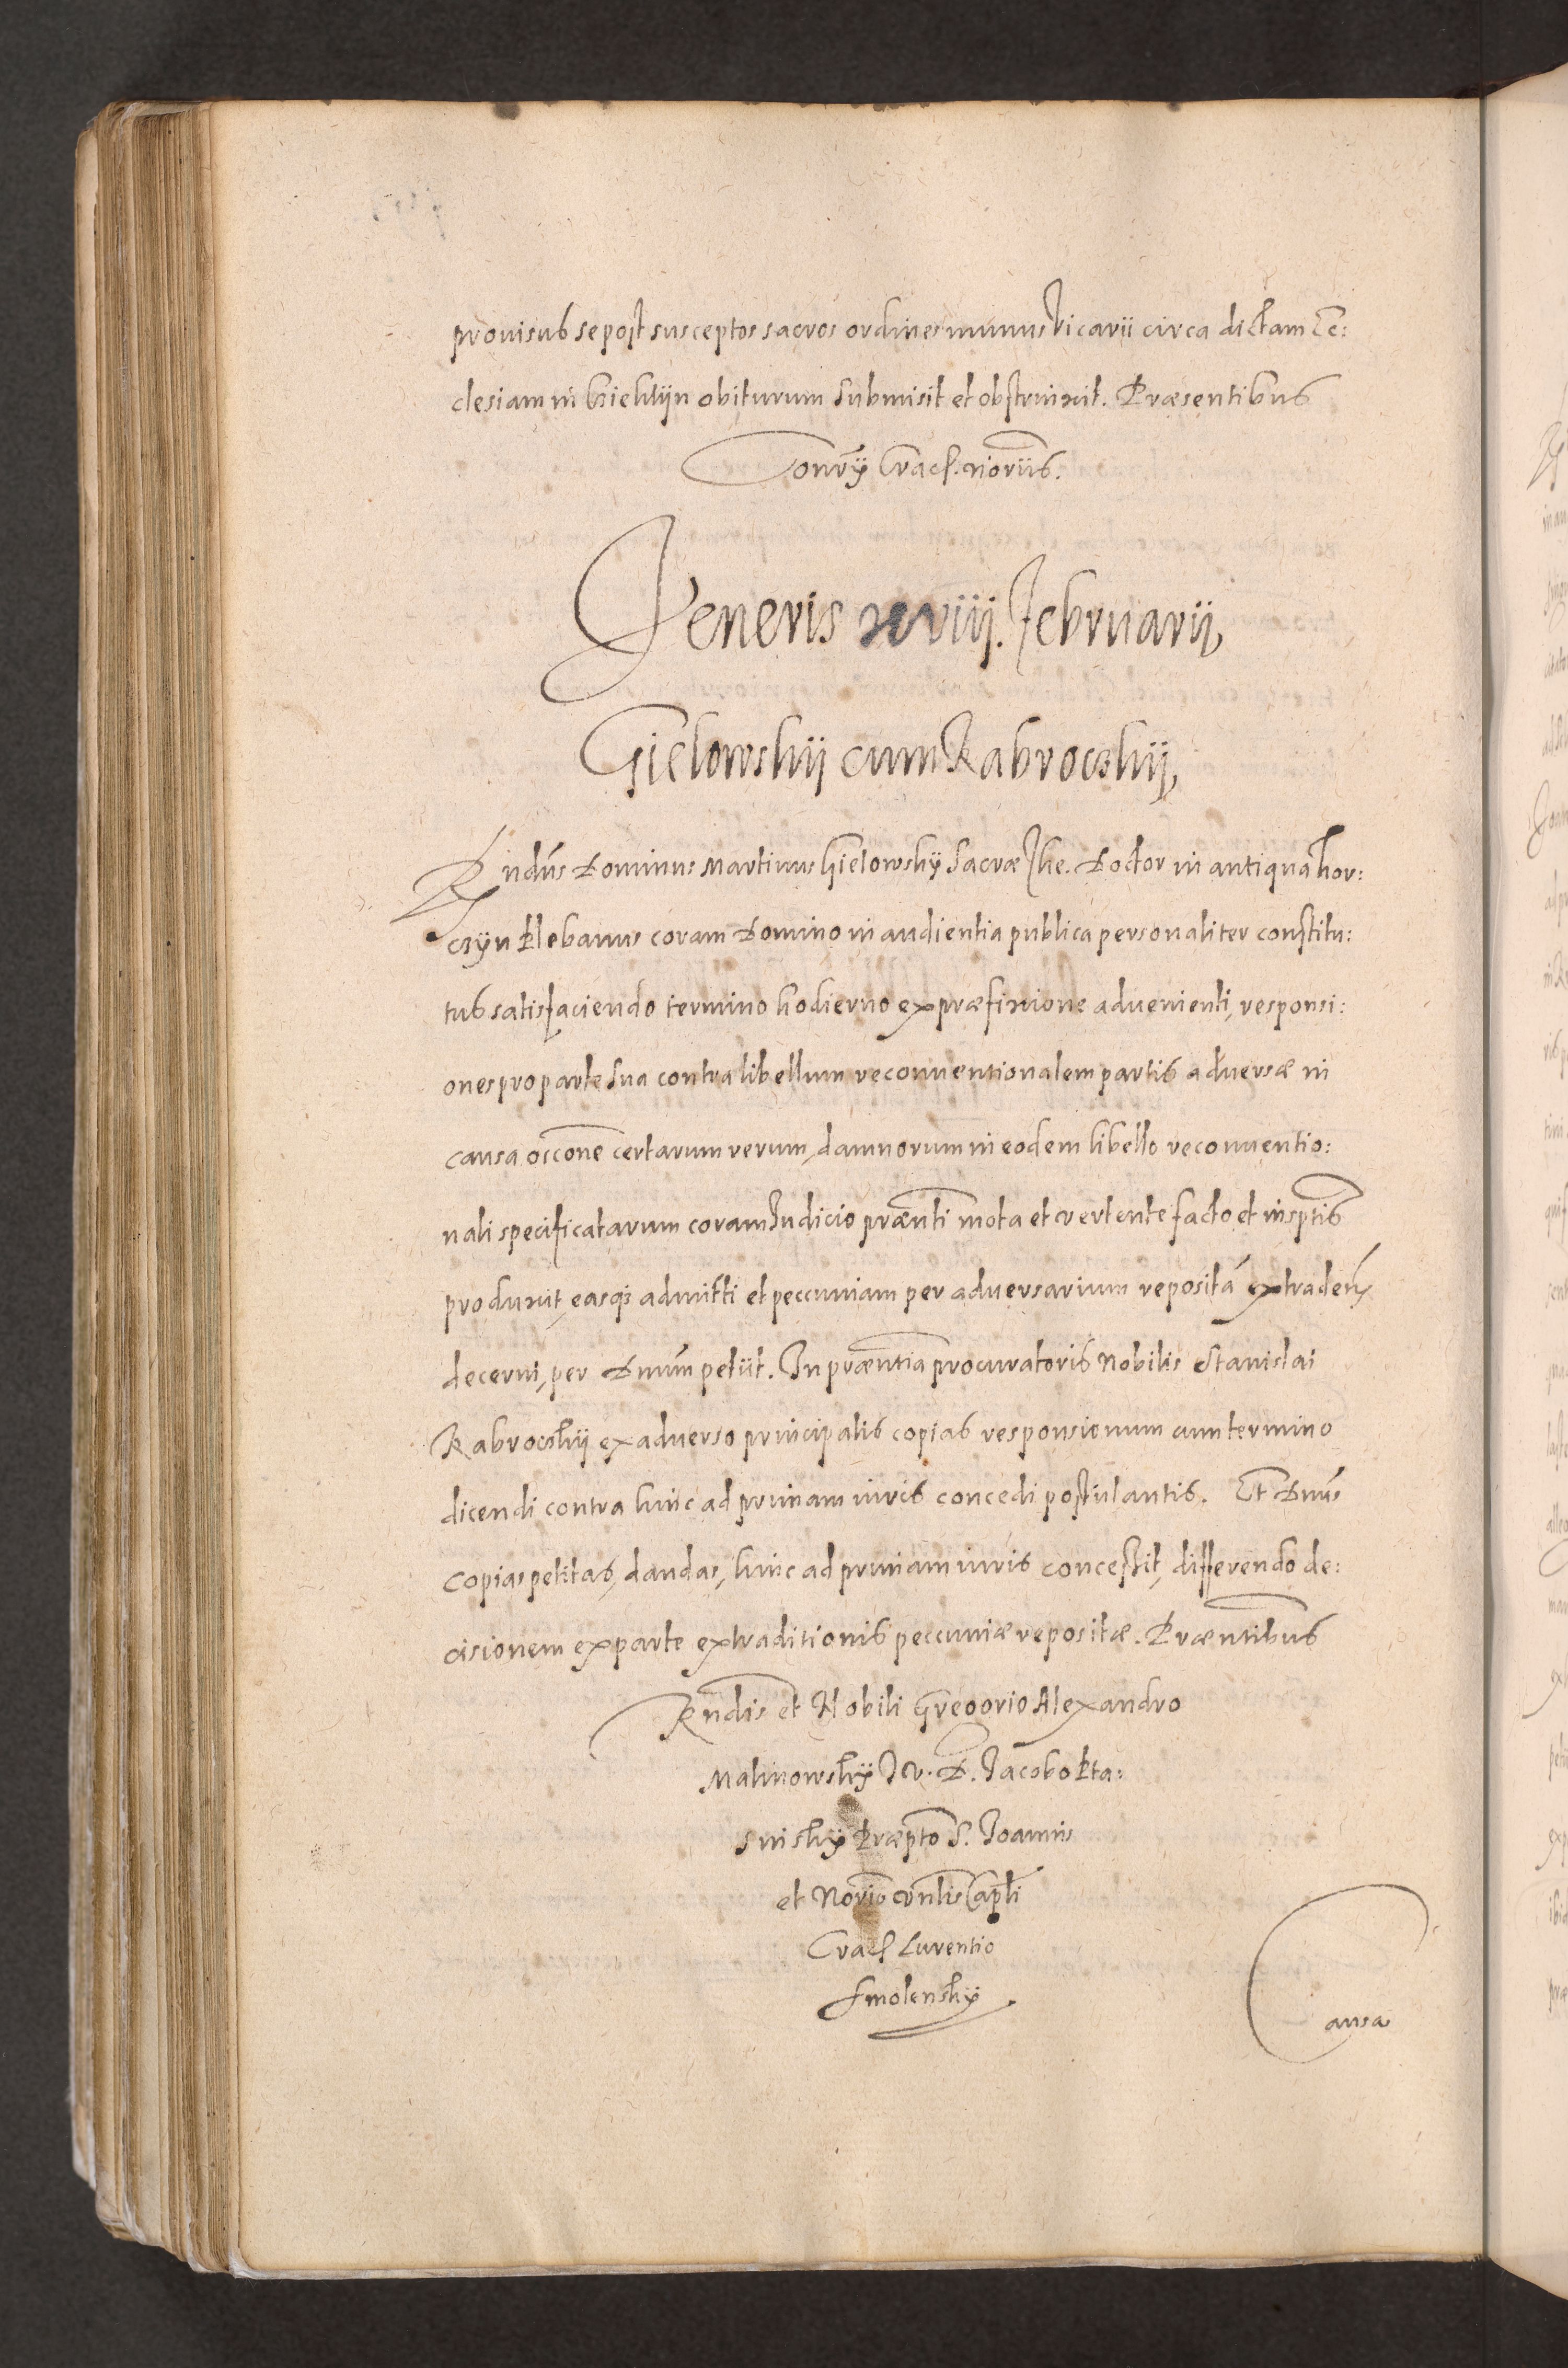 provisus se post susceptos sacros ordines munus Vicarii circa dictam Ec:
clesiam in obiturum submisit et obstrinxit. Præsentibus
Con. Crac. noriis.
Veneris xviii. Februarii,
Gielowskii cum Kabrowskij,
Rndus Dominus Martinus Gielowskÿ Sacræ The. Doctor in antiqua hor:
czÿn Plebanus coram Domino in audientia publica personaliter constitu:
tus satisfaciendo termino hodierno ex præfixione advenienti, responsi:
ones pro parte sua contra libellum reconventionalem partis adversæ in
causa certarum rerum, damnorum in eodem libello reconventio:
nali specificatarum coram Judicio prænti mota et vertente facto et in sptis
produxit, easqz admitti et peccuniam per adversarium repositā extraden
decerni, per Dnum petiit. In præntia procuratoris Nobilis Stanislai
Kabrowskij ex adverso principalis copias responsionum cum termino
dicendi contra hinc ad primam iuris concedi postulantis. Et Dnus
copias petitas, dandas, hinc ad primam iuris concessit, differendo de:
cisionem ex parte extraditionis peccuniæ repositæ. Præntibus
Rndis et Nobili Gregorio Alexandro
Malinowskÿ J. V. D. Jacobo Pta:
sinskÿ Præpto S. Joannis
et Norio Capli
Crac Lurentio
Smolenskÿ
Causa